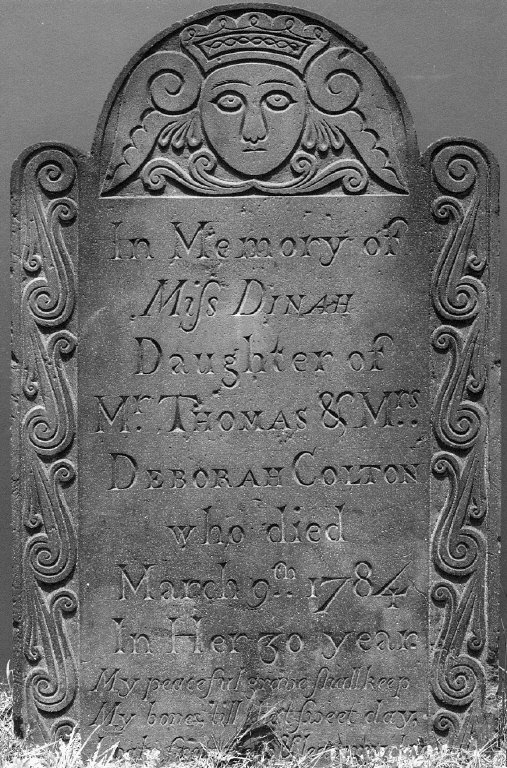 In Memory of
Miſs DINAH
Daughter of
Mr. THOMAS & Mrs.
DEBORAH COLTON
who died
March 9th. 1784
In Her 30 year.
My peaceful grave ſhall keep
My bones till that ſweet day,